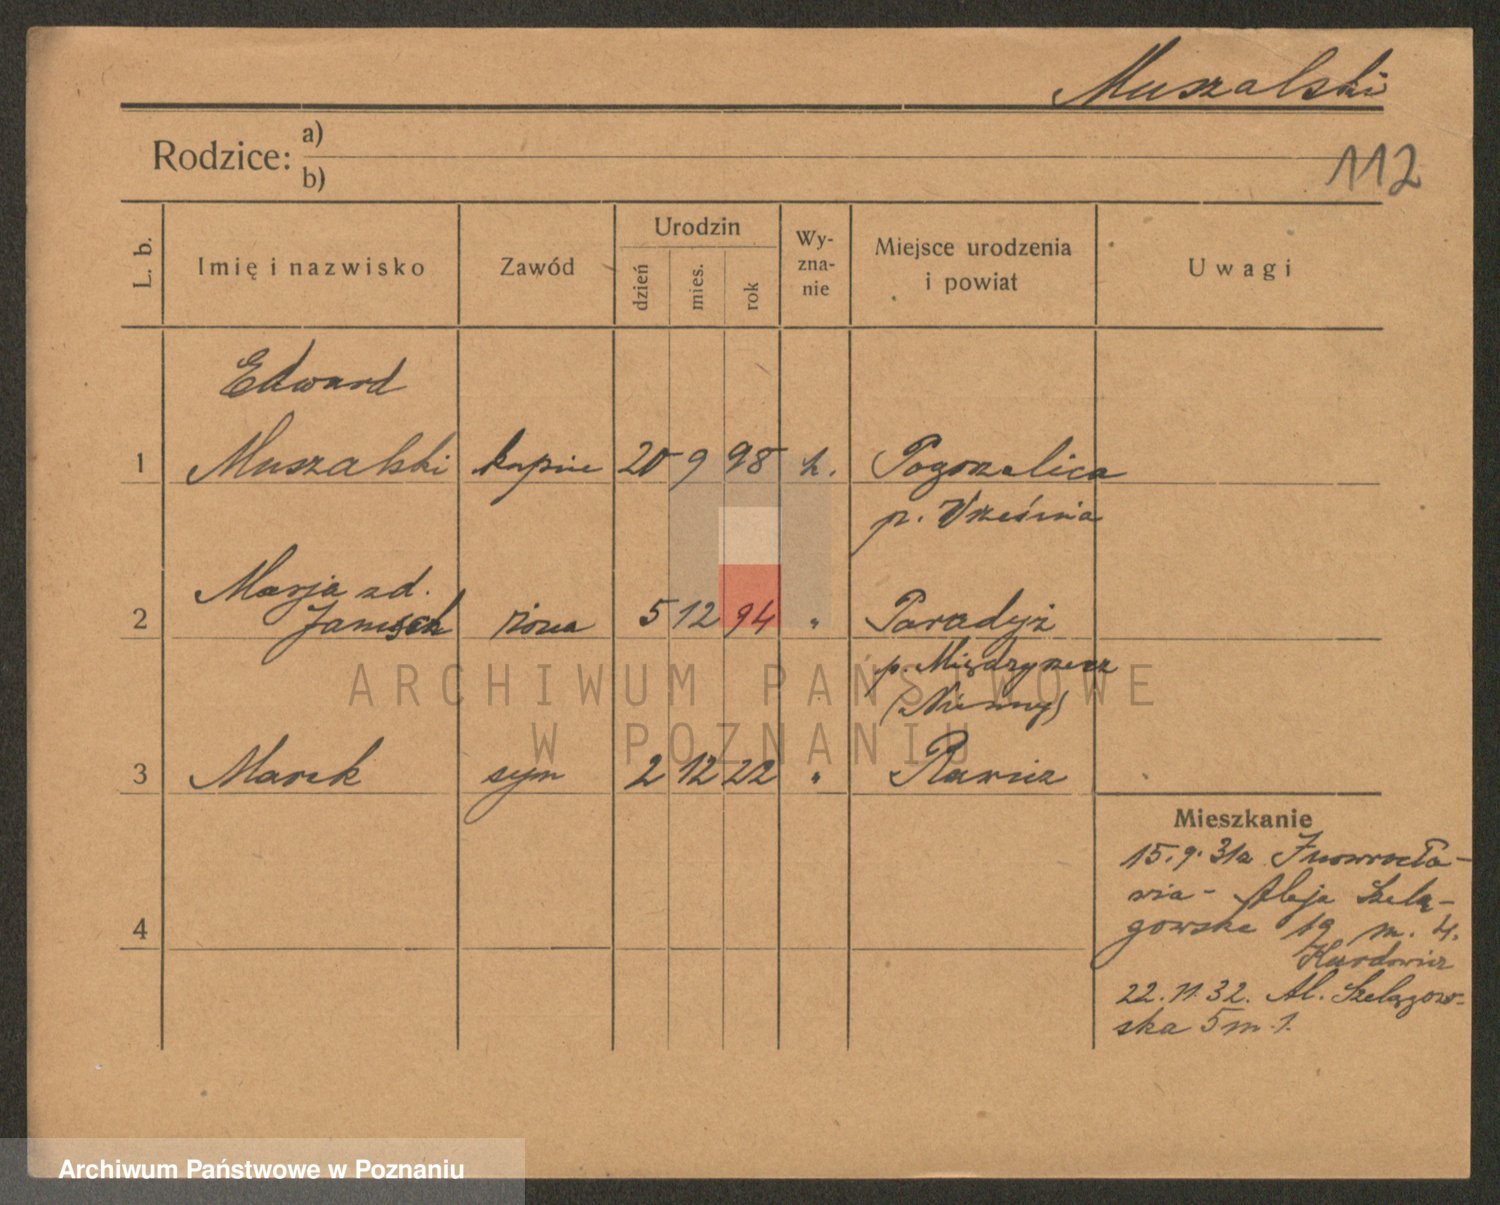 Muszalski
Rodzice: a)
b)
112
L. b.
Imię i nazwisko
Zawód
Urodzin
dzień
mies.
rok
Wy-
zna-
nie
Miejsce urodzenia
i powiat
Uwagi
Edward
1 Muszalski kupiec 20 9 98 k. Pogorzelica
p. Września
Marja zd.
2 Janisch żona 5 12 94 " Paradyż
p. Międzyrzecz
(Niemcy)
3 Marek syn 2 12 22 " Rawicz
4
Mieszkanie
15.9.31 z Inowrocła-
wia - Aleja Szelą-
gowska 19 m. 4.
22.11.32. Al. Szelągow-
ska 5 m. 1.
ARCHIWUM PAŃSTWOWE
W POZNANIU
Archiwum Państwowe w Poznaniu